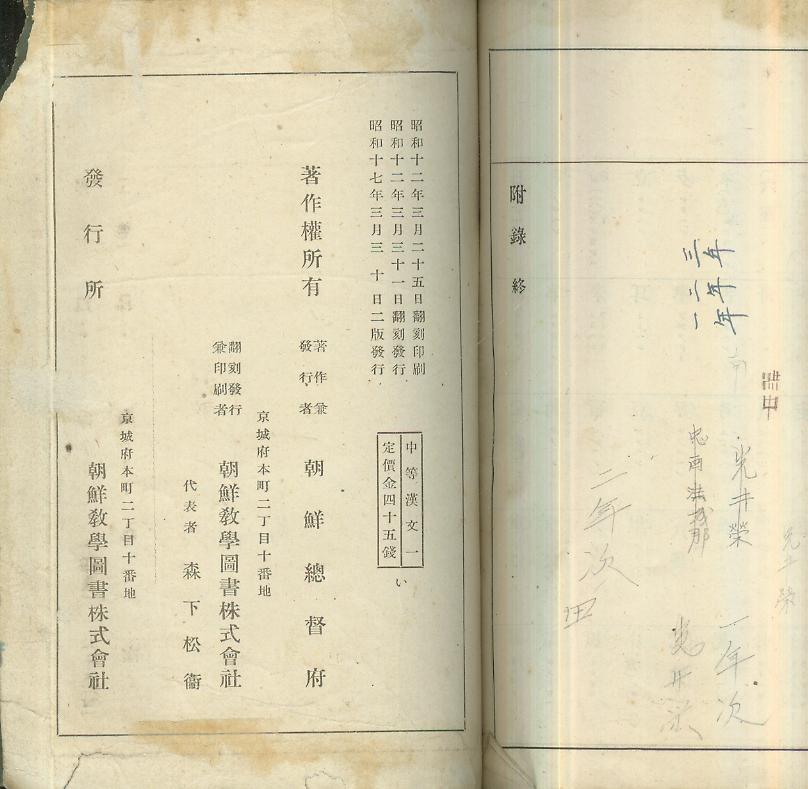 附錄終
三年
二年
一年
光井榮
忠南
一年次
光井榮
二年次
昭和十二年三月二十五日翻刻印刷
昭和十二年三月三十一日翻刻發行
昭和十七年三月三十日二版發行
中等漢文一
定價金四十五錢
い
著作權所有
著作兼
發行者
朝鮮總督府
京城府本町二丁目十番地
翻刻發行
兼印刷者
朝鮮敎學圖書株式會社
代表者 森下松衞
京城府本町二丁目十番地
發行所
朝鮮敎學圖書株式會社